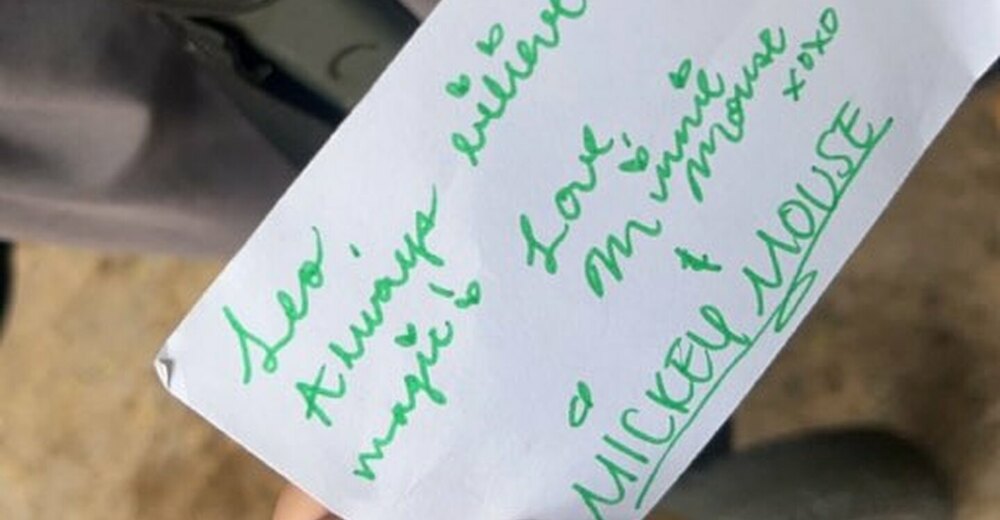 Leo,
Always
magic!
Love,
Minnie
Mouse
xoxo
&
MICKEY MOUSE